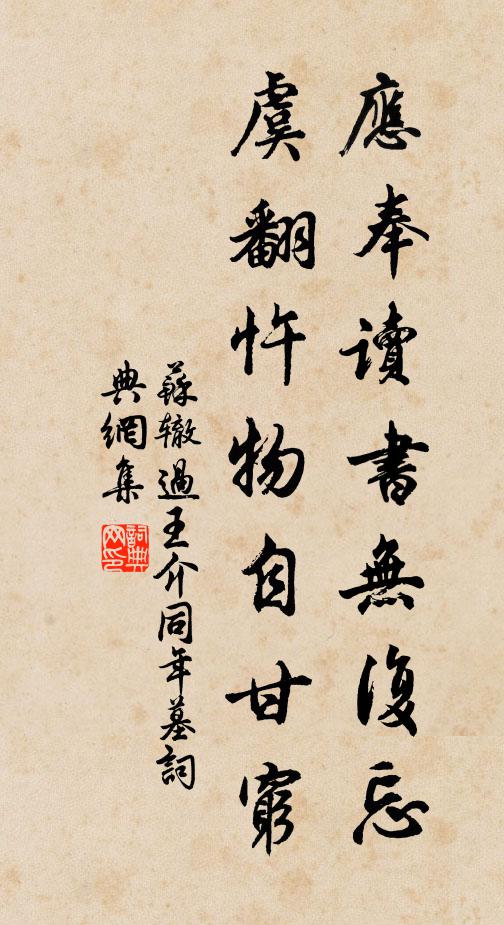 應奉讀書無復忘
虞翻忤物自甘窮
蘇轍過王介同年墓詞
典網集
詞典
网印